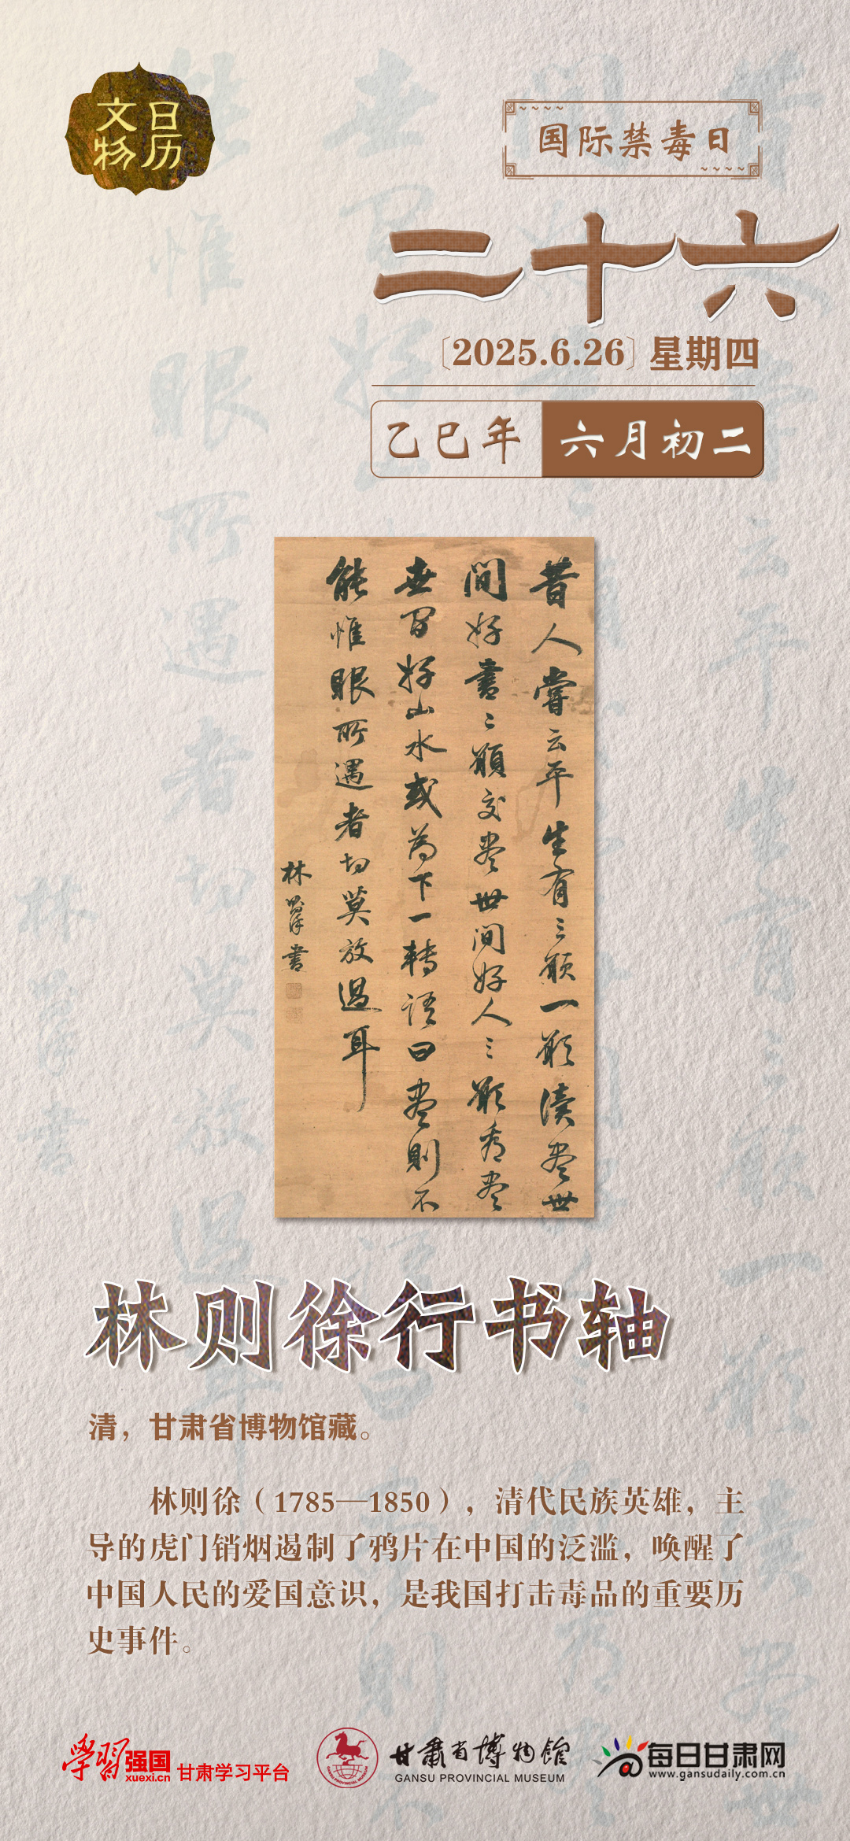 文物
日历
国际禁毒日
二十六
〔2025.6.26〕星期四
乙巳年 六月初二
昔人嘗云平生有三願一願讀盡世
間好書二願交盡世間好人三願看盡
世間好山水或為下一轉語曰盡則不
能惟眼所遇者切莫放過耳
林則徐書
林则徐行书轴
清，甘肃省博物馆藏。
林则徐（1785—1850），清代民族英雄，主
导的虎门销烟遏制了鸦片在中国的泛滥，唤醒了
中国人民的爱国意识，是我国打击毒品的重要历
史事件。
学习强国 xuexi.cn 甘肃学习平台
甘肃省博物馆
GANSU PROVINCIAL MUSEUM
每日甘肃网
www.gansudaily.com.cn